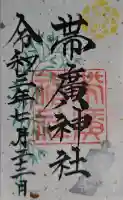 帯廣神社
令和三年七月二十二日